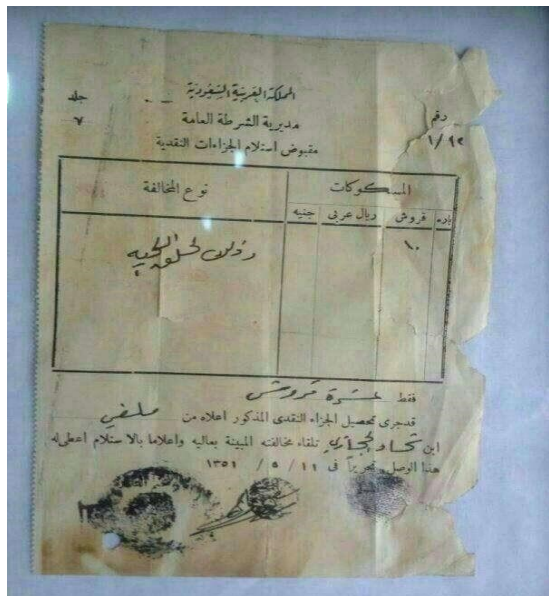 المملكة العربية السعودية
مديرية الشرطة العامة
مقبوض استلام الجزاءات النقدية
جلد
٧
رقم
١/٩٢
المسكوكات
نوع المخالفة
باره فروش ريال عربى جنيه
١٠
وذلك لحلقه اللحيه
فقط عشرة قروش
قد جرى تحصيل الجزاء النقدى المذكور اعلاه من ملفي
ابن الحجازي تلقاء مخالفته المبينة بعاليه واعلاما بالاستلام اعطى له
هذا الوصل تحريراً فى ١١ / ٥ / ١٣٥١